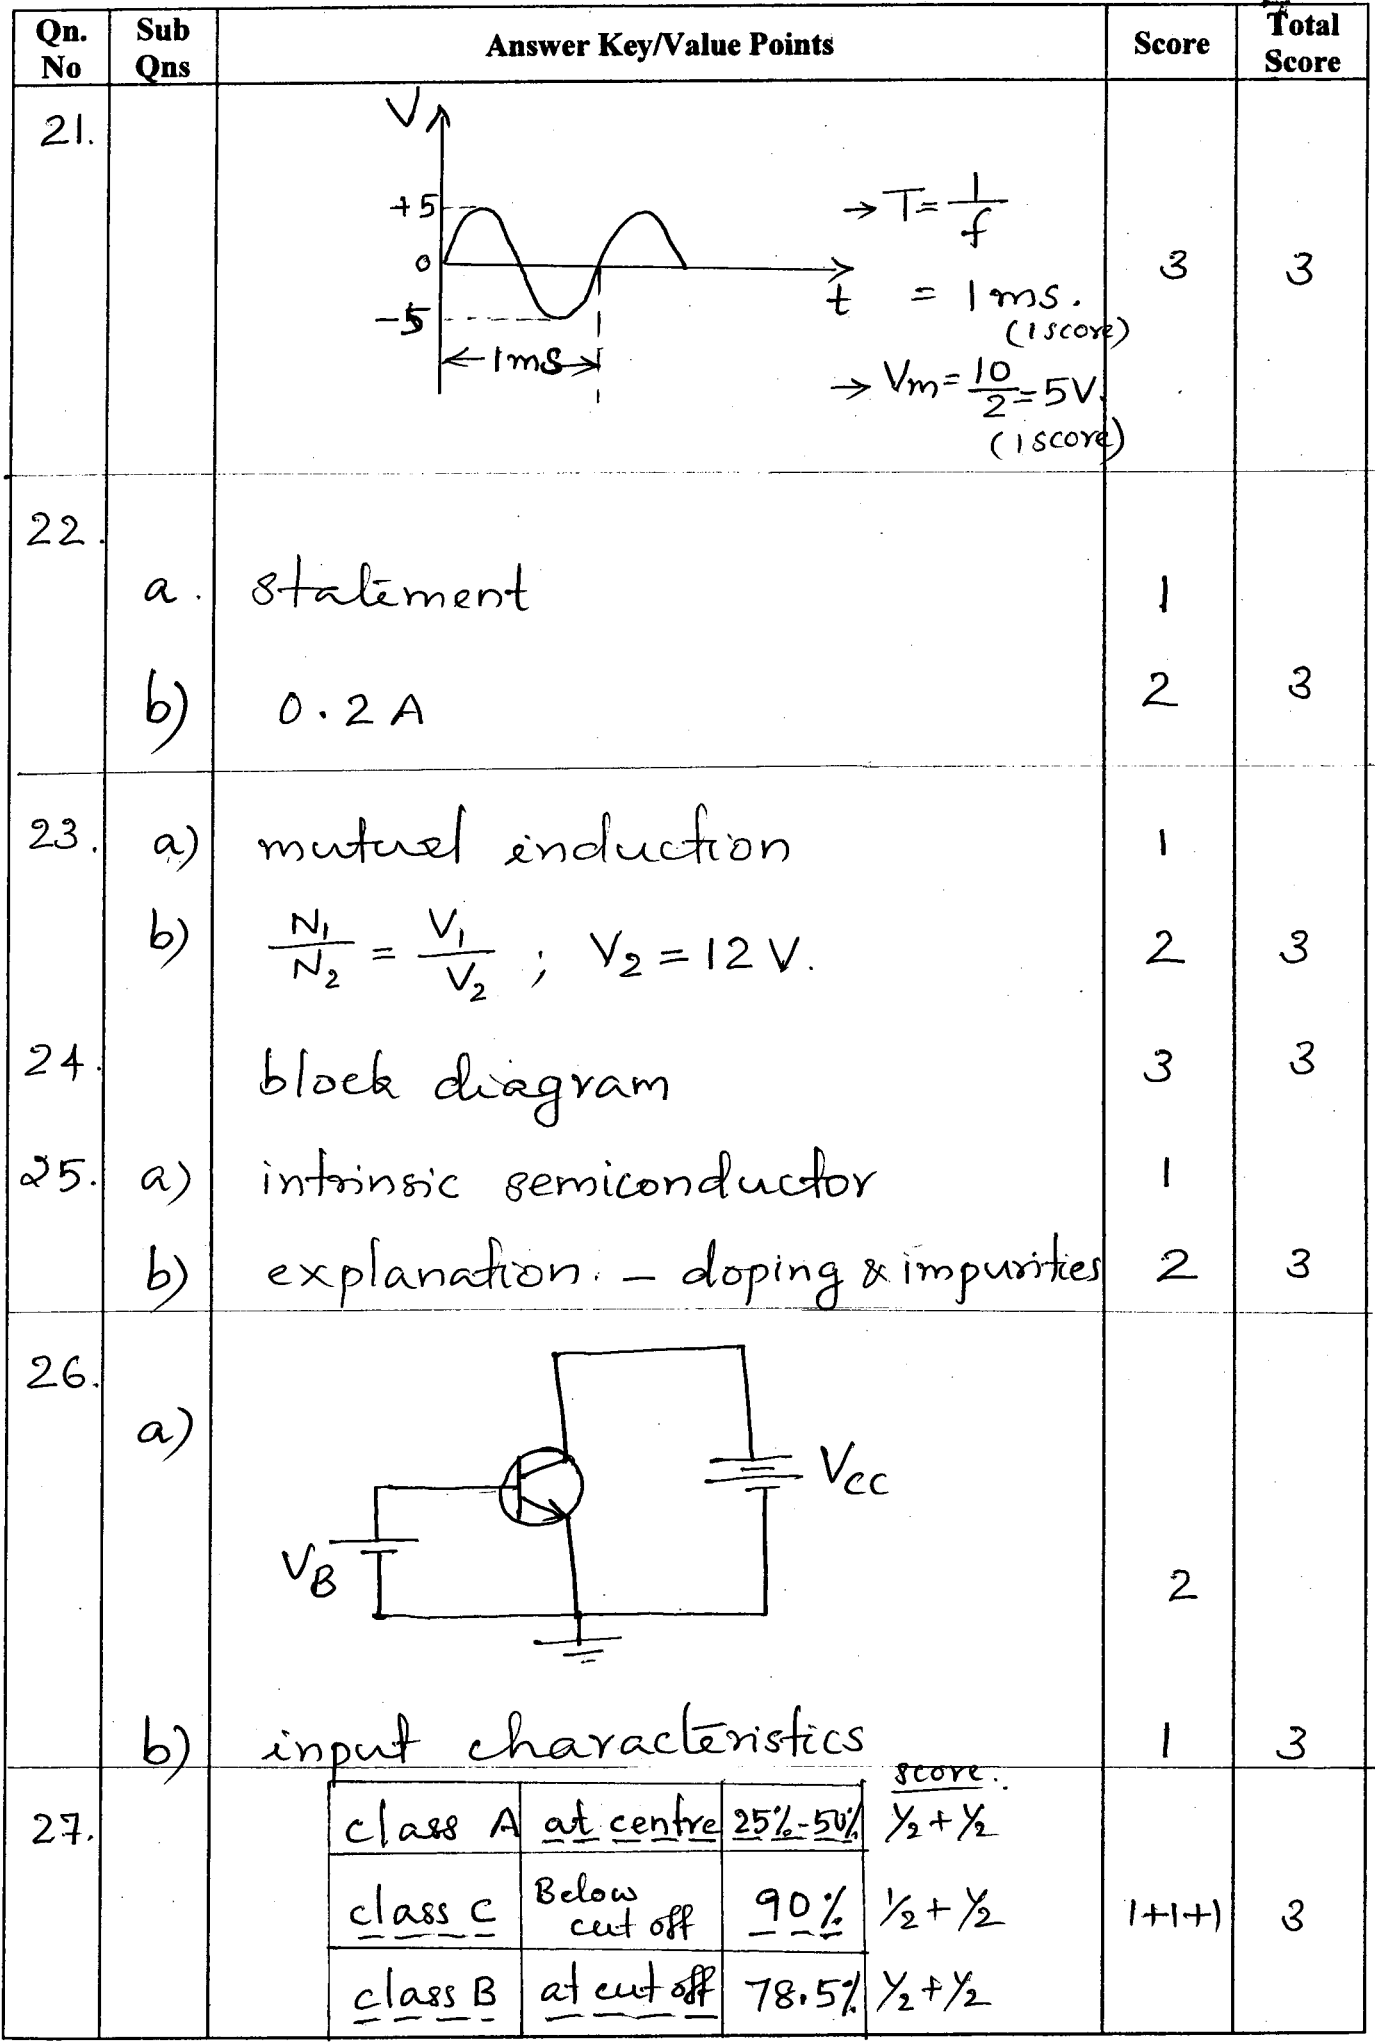 Qn. No Sub Qns Answer Key/Value Points Score Total Score
21.
V
+5
0
-5
t
1ms
→ T = 1/f
= 1ms.
(1 score)
→ Vm = 10/2 = 5V.
(1 score)
3 3
22.
a. statement 1
b) 0.2 A 2 3
23. a) mutual induction 1
b) N1/N2 = V1/V2 ; V2 = 12 V. 2 3
24. block diagram 3 3
25. a) intrinsic semiconductor 1
b) explanation. – doping & impurities 2 3
26.
a)
VCC
VB
2
b) input characteristics 1 3
score.
27. class A at centre 25%-50% ½+½
class C Below cut off 90% ½+½ 1+1+1 3
class B at cut off 78.5% ½+½